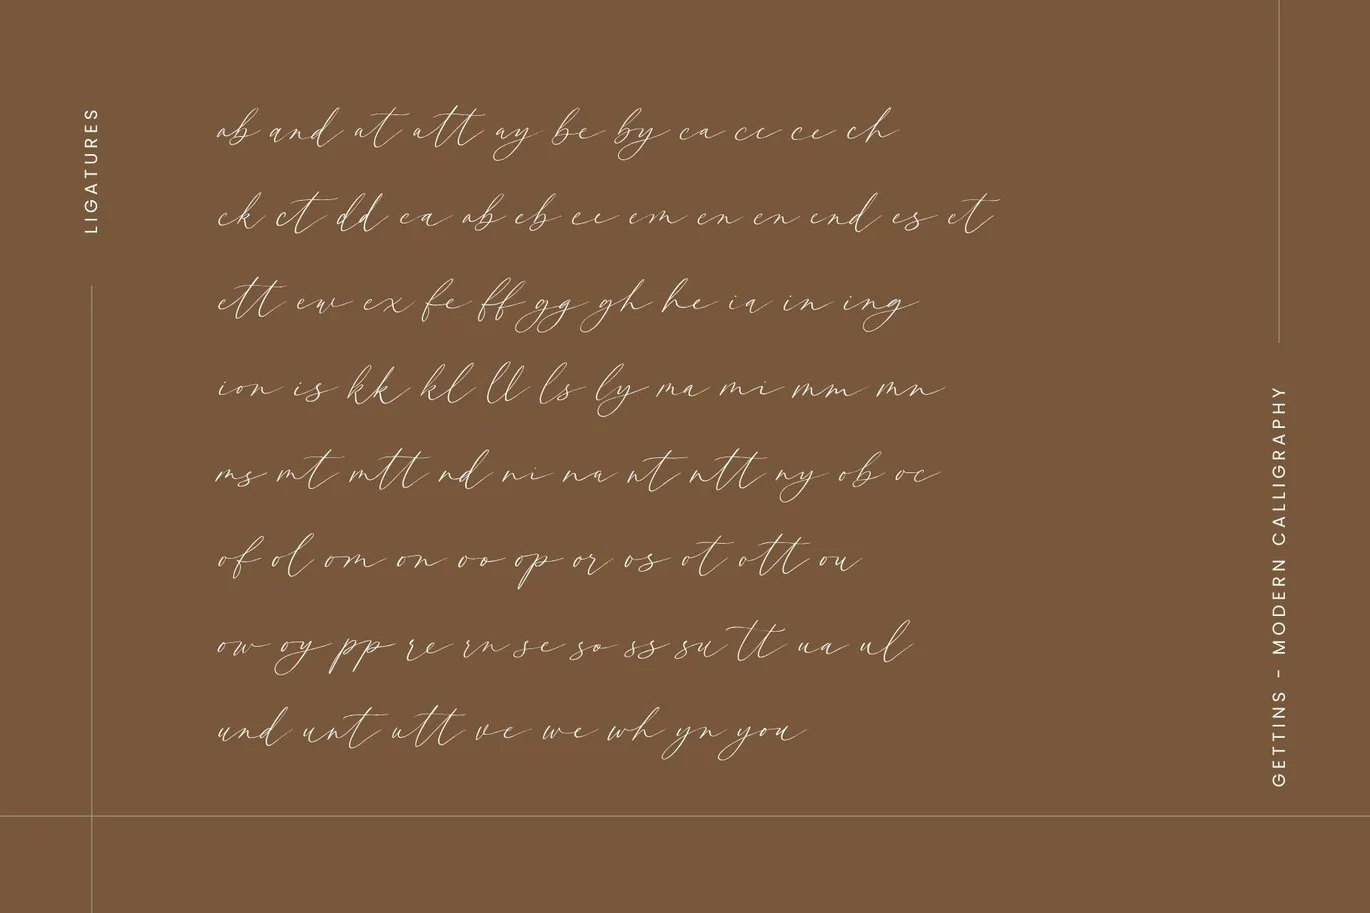 LIGATURES
ab and at att ay be by ca cc ce ch
ck ct dd ea ab eb ec em en en end es et
ett ew ex fe ff gg gh he ia in ing
ion is kk kl ll ls ly ma mi mm mn
ms mt mtt nd ni na nt ntt ny ob oc
of ol om on oo op or os ot ott ou
ow oy pp re rn se so ss su tt ua ul
und unt utt ve we wh yn you
GETTINS - MODERN CALLIGRAPHY